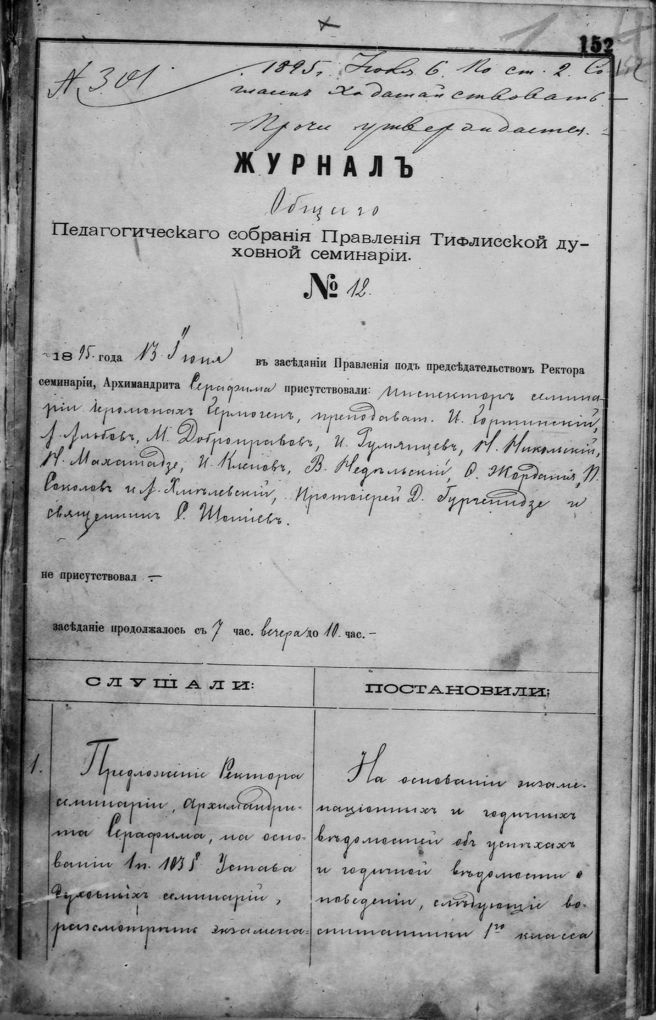 152
152
№ 301.
1895, Июня 6. По ст. 2. Со
гласенъ ходатайствовать
Прочее утверждается.
ЖУРНАЛЪ
Общаго
Педагогическаго собранія Правленія Тифлисской ду-
ховной семинаріи.
№ 12.
1895. года Іюня въ засѣданіи Правленія подъ предсѣдательствомъ Ректора
семинаріи, Архимандрита Серафима присутствовали: инспекторъ семина-
ріи Іеромонахъ Гермогенъ, преподават. И.
А. Альбовъ, М. Добронравовъ, И. Румянцевъ, Н. Никольскій,
Н. Махатадзе, И. Кленовъ, В. Недѣльскій, С. Жорданія, П.
Соколовъ и А. Хмѣлевскій, Протоіерей Д. и
священникъ С. Шошіевъ.
не присутствовал –
засѣданіе продолжалось съ 7 час. вечера до 10. час. –
СЛУШАЛИ:
1. Предложеніе Ректора
семинаріи, Архимандри-
та Серафима, на осно-
ваніи 1 п. 103 § Устава
Духовныхъ семинарій,
разсмотрѣть экзамена-
ПОСТАНОВИЛИ:
На основаніи экзаме-
націонныхъ и годичныхъ
вѣдомостей объ успѣхахъ
и годичной вѣдомости о
поведеніи, слѣдующіе во-
спитанники 1го класса